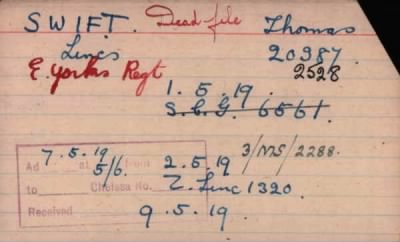 SWIFT. Dead file Thomas
Lincs 20387.
E. Yorks Regt 2528
1.5.19.
S.C.G. 6561.
7.5.19 2.5.19 3/MS/2288.
Ad at from
5/6.
to Chelsea No. Z. Linc 1320.
Received 9.5.19.